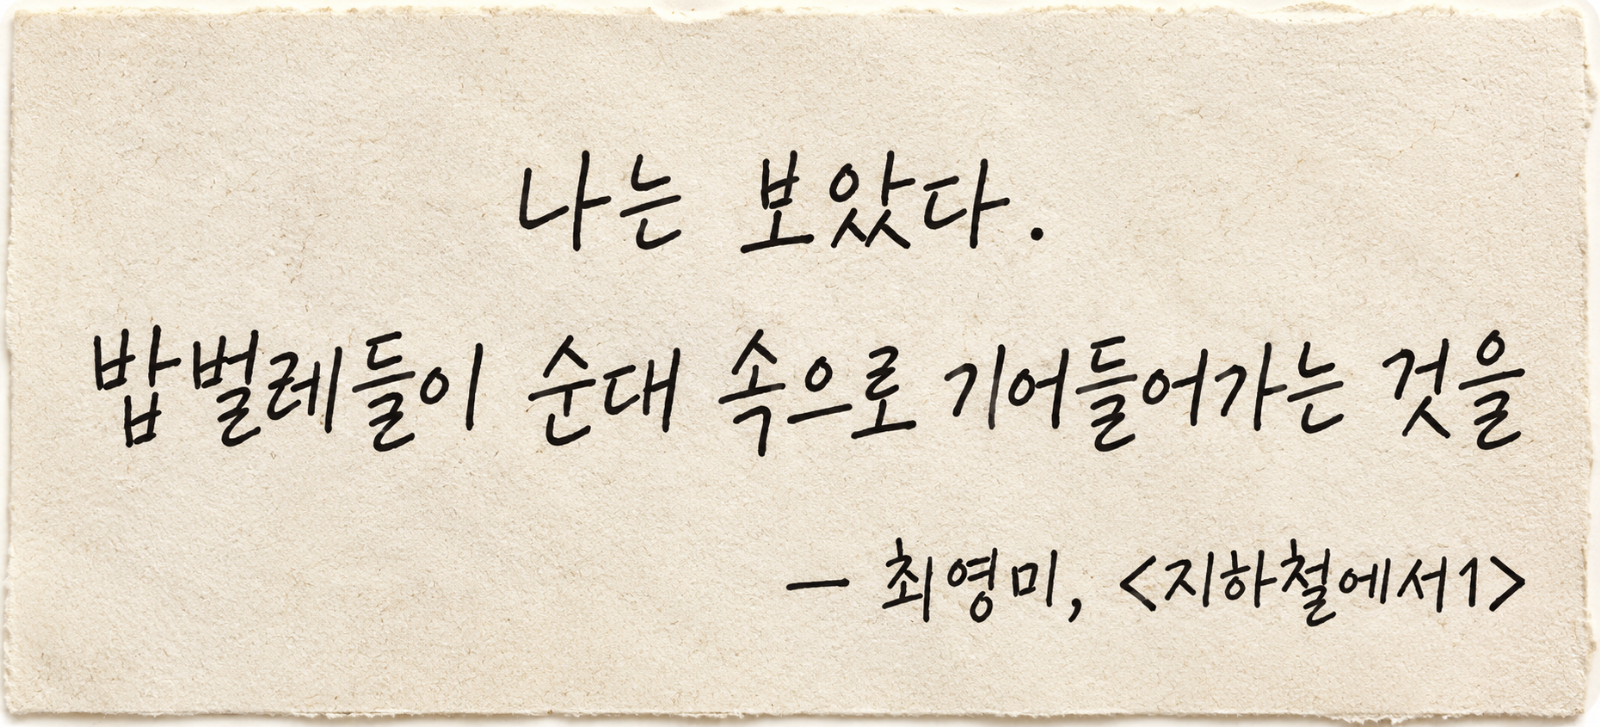 나는 보았다.
밥벌레들이 순대 속으로 기어들어가는 것을
— 최영미, <지하철에서1>